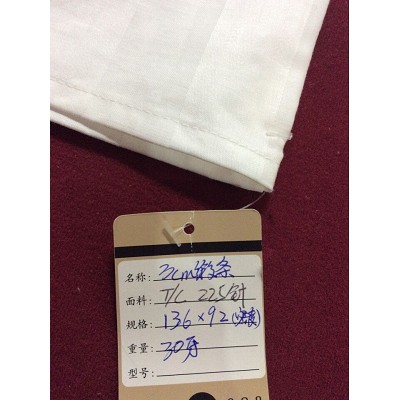 名称: 3cm缎条
面料: T/C 225针
规格: 136×92(密度)
重量: 30牙
型号: